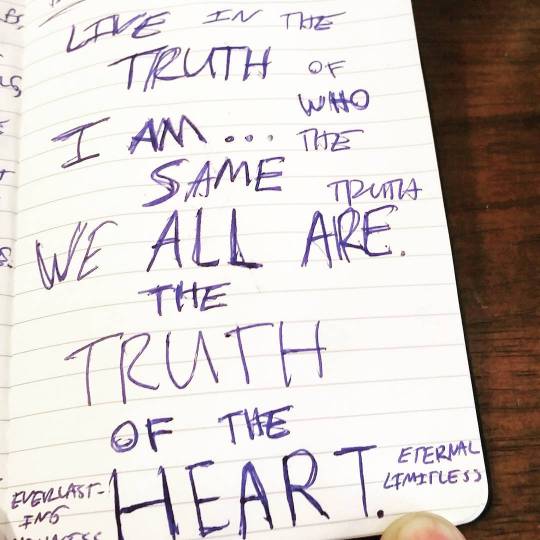 LIVE IN THE
TRUTH OF
WHO
I AM... THE
SAME TRUTH
WE ALL ARE.
THE
TRUTH
OF THE
HEART.
ETERNAL
LIMITLESS
EVERLAST-
ING